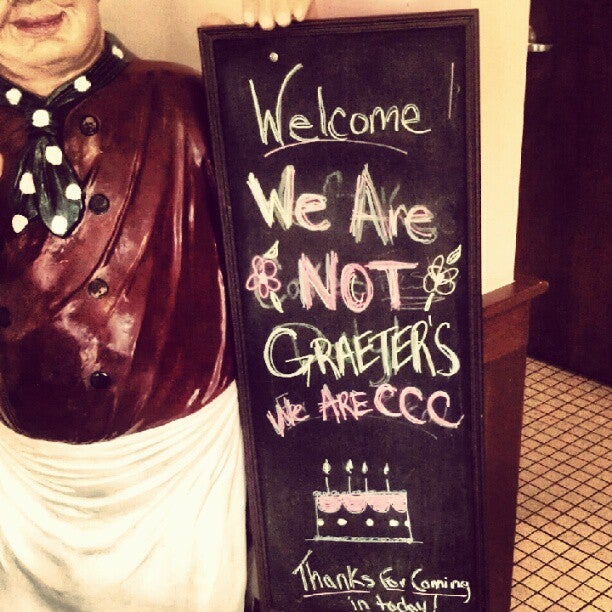 Welcome!
We Are
NOT
GRAETER'S
We ARE CCC
Thanks For Coming
in today!